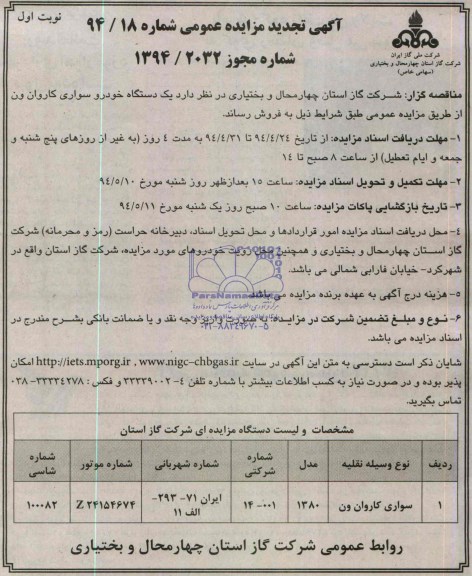 نوبت اول
آگهی تجدید مزایده عمومی شماره ۱۸ / ۹۴
شماره مجوز ۲۰۳۲ / ۱۳۹۴
شرکت ملی گاز ایران
شرکت گاز استان چهارمحال و بختیاری
(سهامی خاص)
مناقصه گزار: شرکت گاز استان چهارمحال و بختیاری در نظر دارد یک دستگاه خودرو سواری کاروان ون
از طریق مزایده عمومی طبق شرایط ذیل به فروش رساند.
۱- مهلت دریافت اسناد مزایده: از تاریخ ۹۴/۴/۲۴ تا ۹۴/۴/۳۱ به مدت ۴ روز (به غیر از روزهای پنج شنبه و
جمعه و ایام تعطیل) از ساعت ۸ صبح تا ۱۴
۲- مهلت تکمیل و تحویل اسناد مزایده: ساعت ۱۵ بعدازظهر روز شنبه مورخ ۹۴/۵/۱۰
۳- تاریخ بازگشایی پاکات مزایده: ساعت ۱۰ صبح روز یک شنبه مورخ ۹۴/۵/۱۱
۴- محل دریافت اسناد مزایده امور قراردادها و محل تحویل اسناد، دبیرخانه حراست (رمز و محرمانه) شرکت
گاز استان چهارمحال و بختیاری و همچنین محل رویت خودروهای مورد مزایده، شرکت گاز استان واقع در
شهرکرد- خیابان فارابی شمالی می باشد.
۵- هزینه درج آگهی به عهده برنده مزایده می باشد.
ParsNamadData
۰۲۱-۸۸۳۴۹۶۷۰-۵
۶- نوع و مبلغ تضمین شرکت در مزایده: به صورت واریز وجه نقد و یا ضمانت بانکی بشرح مندرج در
اسناد مزایده می باشد.
شایان ذکر است دسترسی به متن این آگهی در سایت http://iets.mporg.ir ، www.nigc-chbgas.ir امکان
پذیر بوده و در صورت نیاز به کسب اطلاعات بیشتر با شماره تلفن ۴-۳۳۳۳۹۰۰۲ و فکس : ۳۳۳۳۴۲۷۸-۰۳۸
تماس بگیرید.
مشخصات و لیست دستگاه مزایده ای شرکت گاز استان
ردیف نوع وسیله نقلیه مدل شماره شرکتی شماره شهربانی شماره موتور شماره شاسی
۱ سواری کاروان ون ۱۳۸۰ ۱۴-۰۰۱ ایران ۷۱- ۲۹۳- الف ۱۱ Z ۲۴۱۵۴۶۷۴ ۱۰۰۰۸۲
روابط عمومی شرکت گاز استان چهارمحال و بختیاری